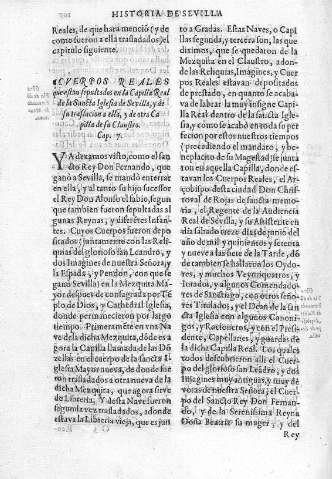 HISTORIA DE SEVILLA
Reales, de que hará menció (y de
como fueron a ella trasladados) el
capitulo siguiente.
CVERPOS REALES
que està sepultados en la Capilla Real
de la Sancta Iglesia de Sevilla, y de
su traslacion a ella, y de otra Ca
pilla de su Claustro.
Cap. 7.
YA dexamos visto, como el san
cto Rey Don Fernando, que
ganó a Sevilla, se mandó enterrar
en ella, y al tanto su hijo sucessor
el Rey Don Alonso el sabio, segun
que tambien fueron sepultadas al
gunas Reynas, y diferetes Infan-
tes. Cuyos Cuerpos fueron depo
sitados (juntamente con las Reli-
quias del glorioso san Leandro, y
dos Imagines de nuestra Señora, y
la Espada, y Pendon, con que se
ganó Sevilla) en la Mezquita Ma
yor despues de consagrada por Té
plo de Dios, y Cathedral Iglesia,
donde permanecieron por largo
tiempo. Primeramēte en vna Na
ve de la dicha Mezquita, dōde es a
gora la Capilla llamada de las Dō
zellas en el cuerpo de la sancta I-
glesia Mayor nueva, de donde fue
ron trasladados a otra nave de la
dicha Mezquita, que agora sirve
de Libreria. Y desta Nave fueron
segunda vez trasladados, a donde
estava la Libreria vieja, que es jun
to a Gradas. Estas Naves, o Capi
llas segunda, y tercera son, las que
diximos, que se quedaron de la
Mezquita en el Claustro, adon-
de las Reliquias, Imagines, y Cuer
pos Reales estavan depositados
de prestado, en quanto se acaba-
va de labrar la muy insigne Capi-
lla Real dentro de la sancta Igle-
sia, y como se acabó en toda su per
feccion por estos nuestros tiempos
(precediendo el mandato, y be-
neplacito de su Magestad) se junta
ron en aquella Capilla, donde es-
tavan los Cuerpos Reales, el Ar-
çobispo desta ciudad Don Chris-
toval de Rojas de sancta memo-
ria, el Regente de la Audiencia
Real de Sevilla, y su Assistente en
dia sabado treze dias de junio del
año de mil y quinientos y setenta
y nueve a las siete de la Tarde, dō
de tambien se hallaron los Oydo-
res, y muchos Veyntiquatros, y
Iurados, y algunos Comendado-
res de Sanctiago, con otros seño-
res Titulados, y el Dean de la san
cta Iglesia con algunos Canoni-
gos, y Racioneros, y con el Presi-
dente, Capellanes, y guardas de
la dicha Capilla Real. Los quales
todos descubrieron alli el Cuer-
po del glorioso san Leandro, y dos
Imagines muy antiguas, y muy de
votas de nuestra Señora; el Cuer-
po del Sancto Rey Don Fernan-
do, y de la Serenissima Reyna
Doña Beatriz su muger, y del
Rey